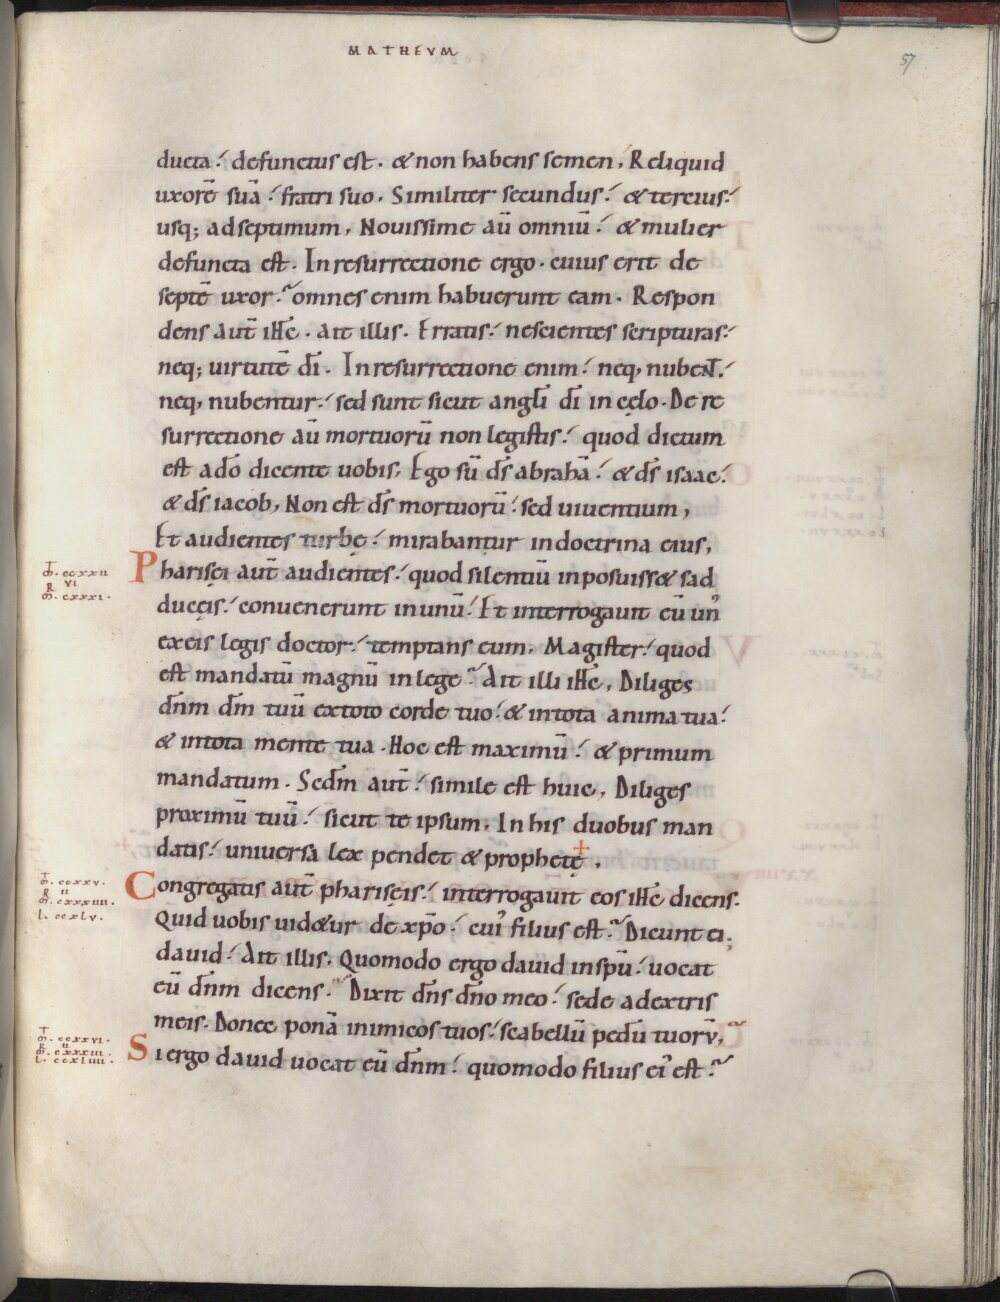 MATHEVM
57
ducta. defunctus est. & non habens semen, Reliquid
uxorē suā. fratri suo. Similiter secundus. & tercius.
usq; ad septimum, Nouissime aū omniū. & mulier
defuncta est. In resurrectione ergo. cuius erit de
septē uxor. omnes enim habuerunt eam. Respon
dens aut̄ ihc̄. ait illis. Erratis. nescientes scripturas.
neq; uirtutē dī. In resurrectione enim. neq, nubeNT.
neq, nubentur. sed sunt sicut angli̅ dī in cęlo. De re
surrectione aū mortuorū non legistis. quod dictum
est a dō dicente uobis, Ego sū ds̄ abrahā. & ds̄ isaac.
& ds̄ iacob, Non est ds̄ mortuorū. sed uiuentium,
Et audientes turbę. mirabantur in doctrina eius,
Pharisęi aut̄ audientes. quod silentiū inposuiss& sad
ducęis. conuenerunt in unū. Et interrogauit eū un᾽
ex eis legis doctor. temptans eum. Magister. quod
est mandatū magnū in lege. Ait illi ihc̄, Diliges
dn̄m dm̄ tuū ex toto corde tuo. & in tota anima tua.
& in tota mente tua. Hoc est maximū. & primum
mandatum. Secdm̄ aut̄. simile est huic, Diliges
proximū tuū. sicut te ipsum, In his duobus man
datis. uniuersa lex pendet & prophetę,
Congregatis aut̄ pharisęis. interrogauit eos ihc̄ dicens.
Quid uobis uid&ur de xp̄o. cui᾽ filius est. Dicunt ei;
dauid. Ait illis. Quomodo ergo dauid in spū. uocat
eū dn̄m dicens. Dixit dn̄s dn̄o meo. sede a dextris
meis. Donec ponā inimicos tuos. scabellū pedū tuorv̄,
Si ergo dauid uocat eū dn̄m. quomodo filius ei᾽ est.
m̄. ccxxii
VI
R
m̄. cxxxi.
m̄. ccxxv.
R ii
m̄. cxxxiiii.
l. ccxlv.
m̄. ccxxvi.
R ii
m̄. cxxxiii.
l. ccxliiii.